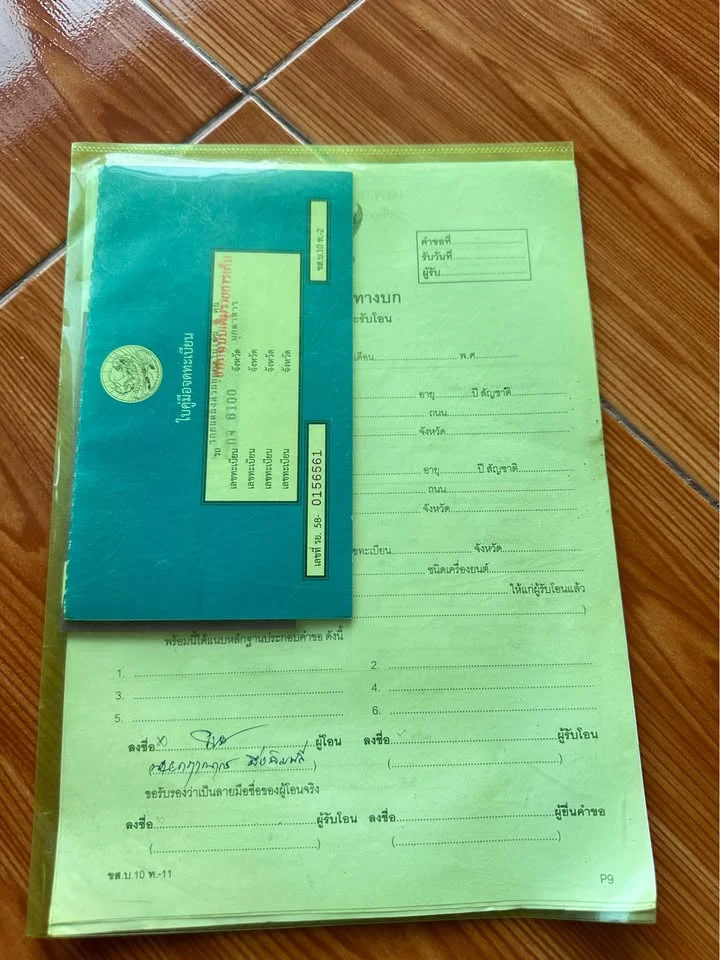 ใบคู่มือจดทะเบียน
ขส.บ.10 ท.-2
รถ
เลขทะเบียน 6100 จังหวัด มุกดาหาร
เลขทะเบียน จังหวัด
เลขทะเบียน จังหวัด
เลขทะเบียน จังหวัด
เลขที่ รย. 58- 0156561
คำขอที่
รับวันที่
ผู้รับ
ทางบก
ะรับโอน
เดือน พ.ศ.
อายุ ปี สัญชาติ
ถนน
จังหวัด
อายุ ปี สัญชาติ
ถนน
จังหวัด
ขทะเบียน จังหวัด
ชนิดเครื่องยนต์
ให้แก่ผู้รับโอนแล้ว
)
พร้อมนี้ได้แนบหลักฐานประกอบคำขอ ดังนี้
1. 2.
3. 4.
5. 6.
ลงชื่อ ผู้โอน ลงชื่อ ผู้รับโอน
( ) ( )
ขอรับรองว่าเป็นลายมือชื่อของผู้โอนจริง
ลงชื่อ ผู้รับโอน ลงชื่อ ผู้ยื่นคำขอ
( ) ( )
ขส.บ.10 ท.-11 P9